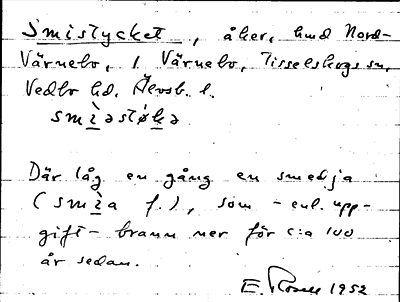 Smistycket, åker, hmd Nord-
Värnebo, 1 Värnebo, Tisselskogs sn,
Vedbo hd, Älvsb. l.
smìəstøkə
Där låg en gång en smedja
(smìa f.), som - enl. upp-
gift - brann ner för c:a 100
år sedan.
E. Rosell 1952